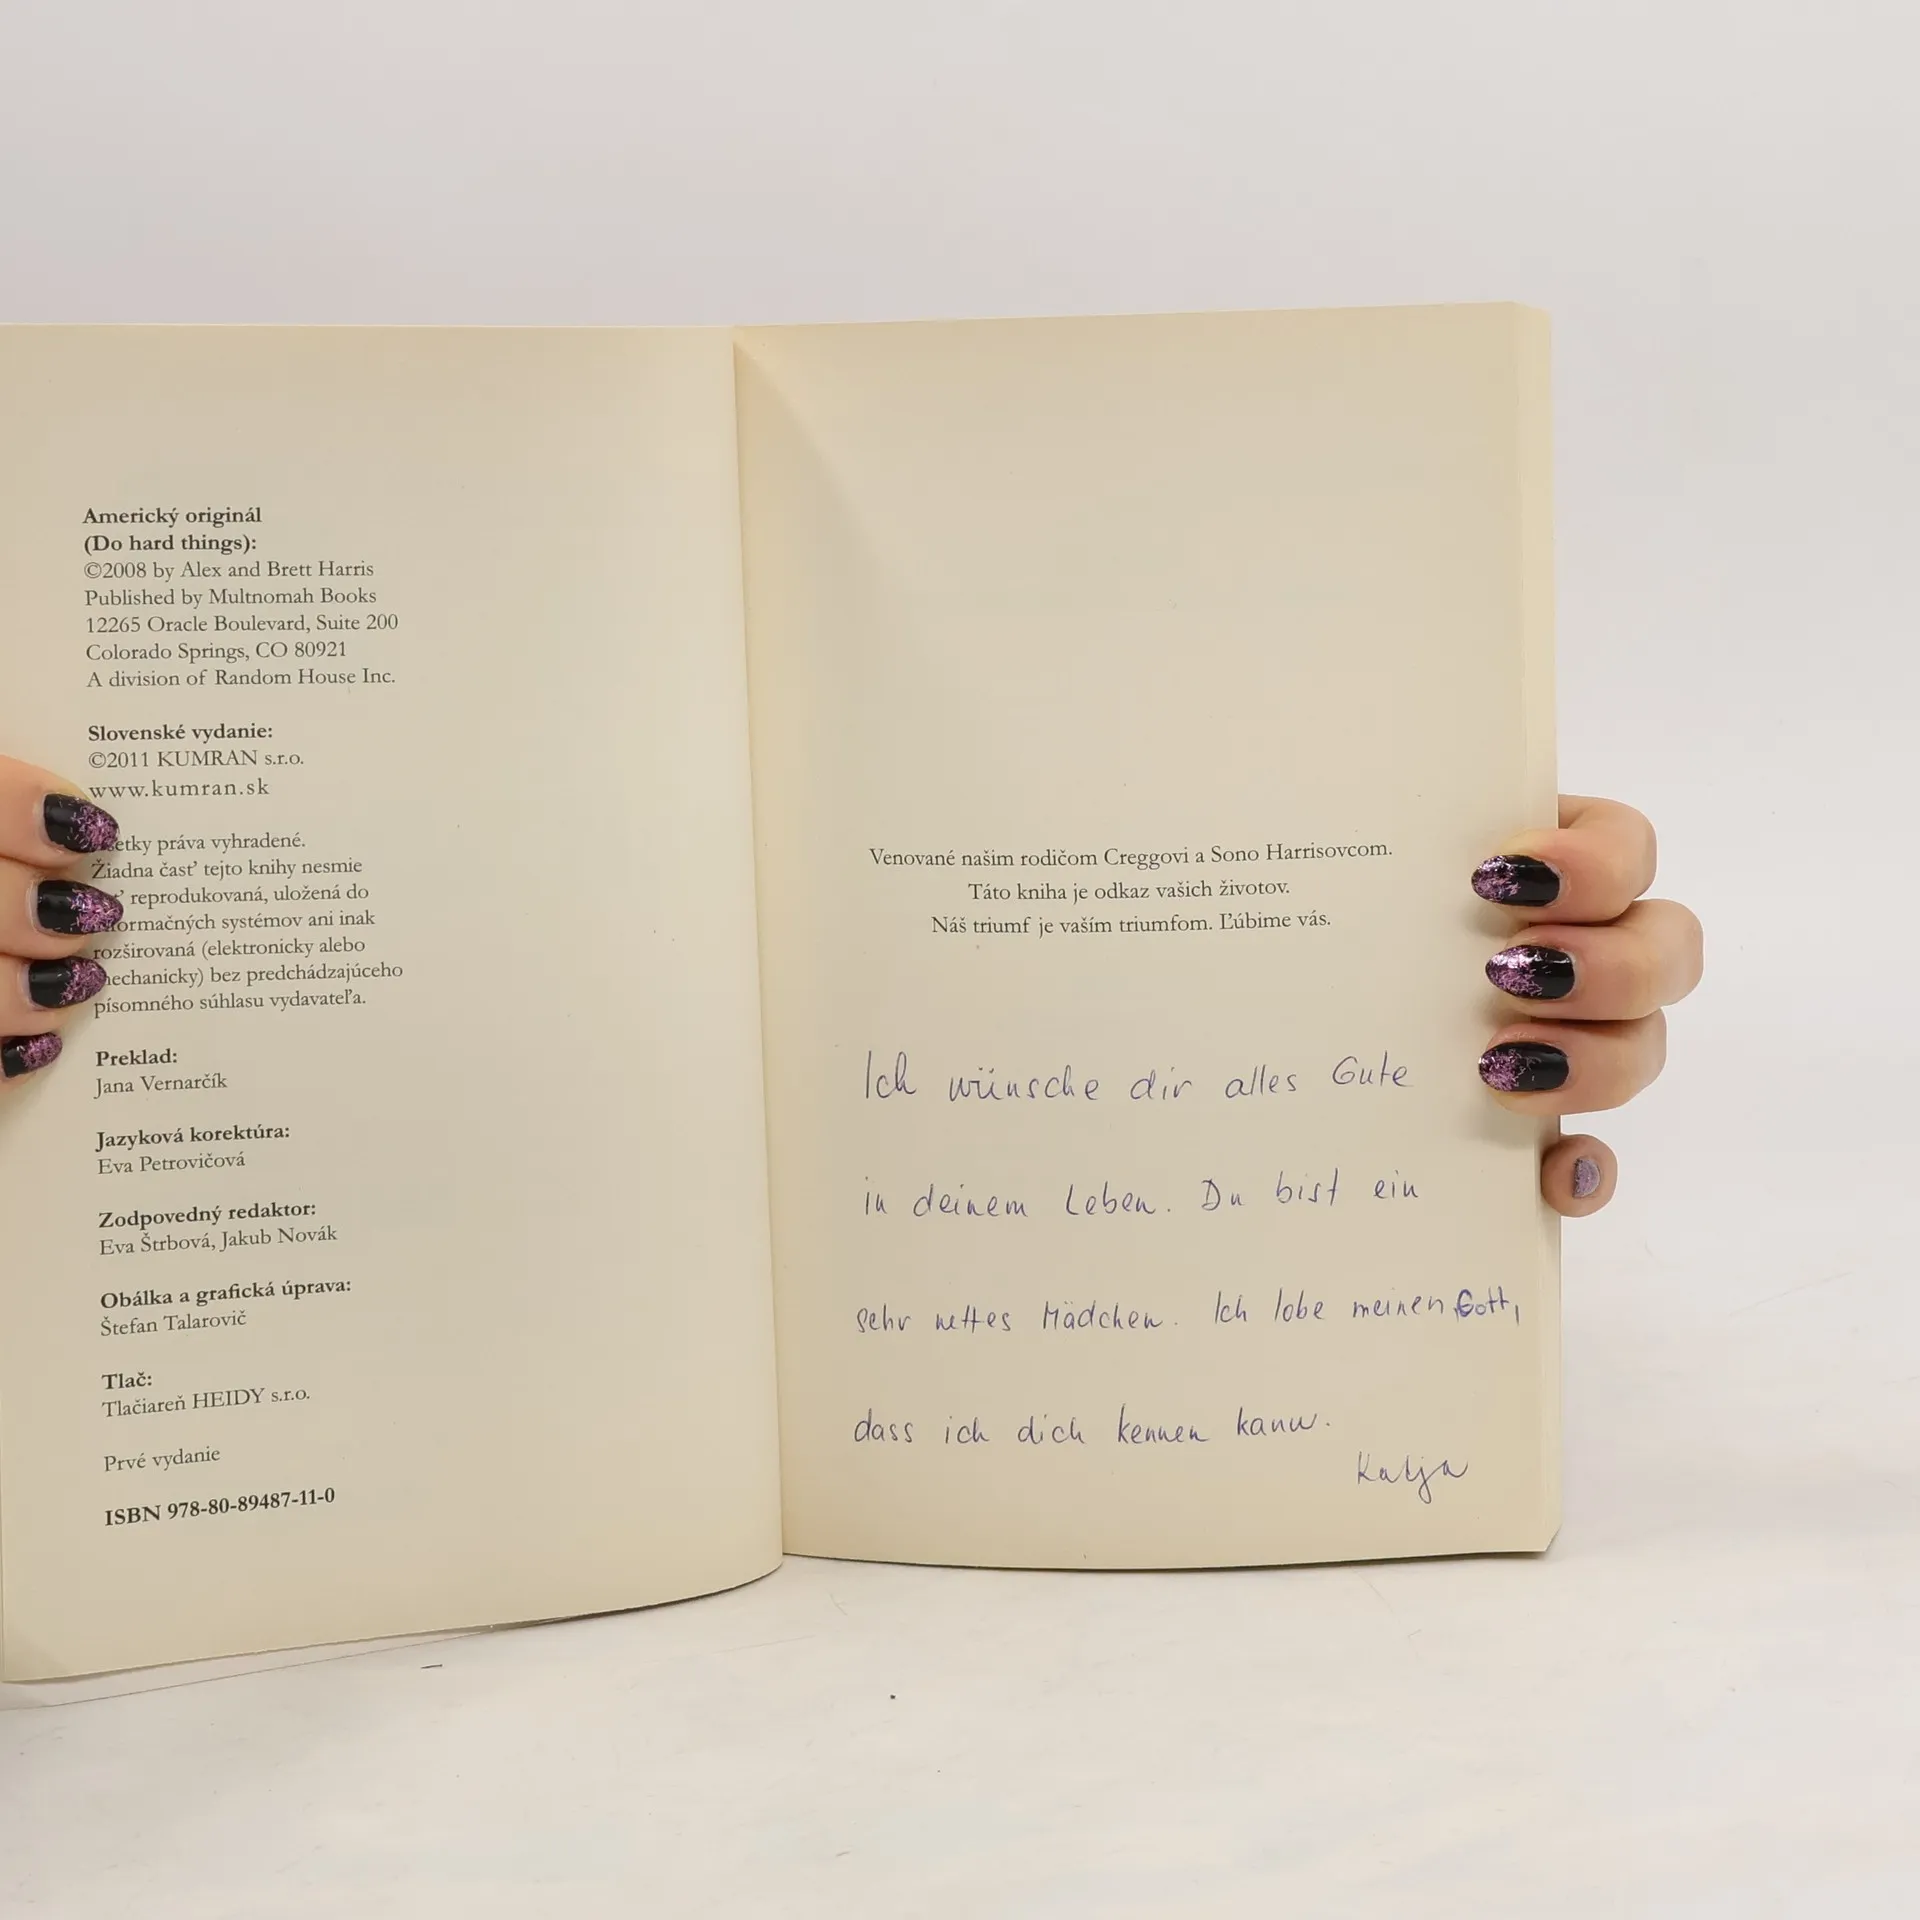 Americký originál
(Do hard things):
©2008 by Alex and Brett Harris
Published by Multnomah Books
12265 Oracle Boulevard, Suite 200
Colorado Springs, CO 80921
A division of Random House Inc.
Slovenské vydanie:
©2011 KUMRAN s.r.o.
www.kumran.sk
práva vyhradené.
Žiadna časť tejto knihy nesmie
reprodukovaná, uložená do
systémov ani inak
rozširovaná (elektronicky alebo
mechanicky) bez predchádzajúceho
písomného súhlasu vydavateľa.
Preklad:
Jana Vernarčík
Jazyková korektúra:
Eva Petrovičová
Zodpovedný redaktor:
Eva Štrbová, Jakub Novák
Obálka a grafická úprava:
Štefan Talarovič
Tlač:
Tlačiareň HEIDY s.r.o.
Prvé vydanie
ISBN 978-80-89487-11-0
Venované našim rodičom Creggovi a Sono Harrisovcom.
Táto kniha je odkaz vašich životov.
Náš triumf je vaším triumfom. Ľúbime vás.
Ich wünsche dir alles Gute
in deinem Leben. Du bist ein
sehr nettes Mädchen. Ich lobe meinen Gott,
dass ich dich kennen kann.
Katja